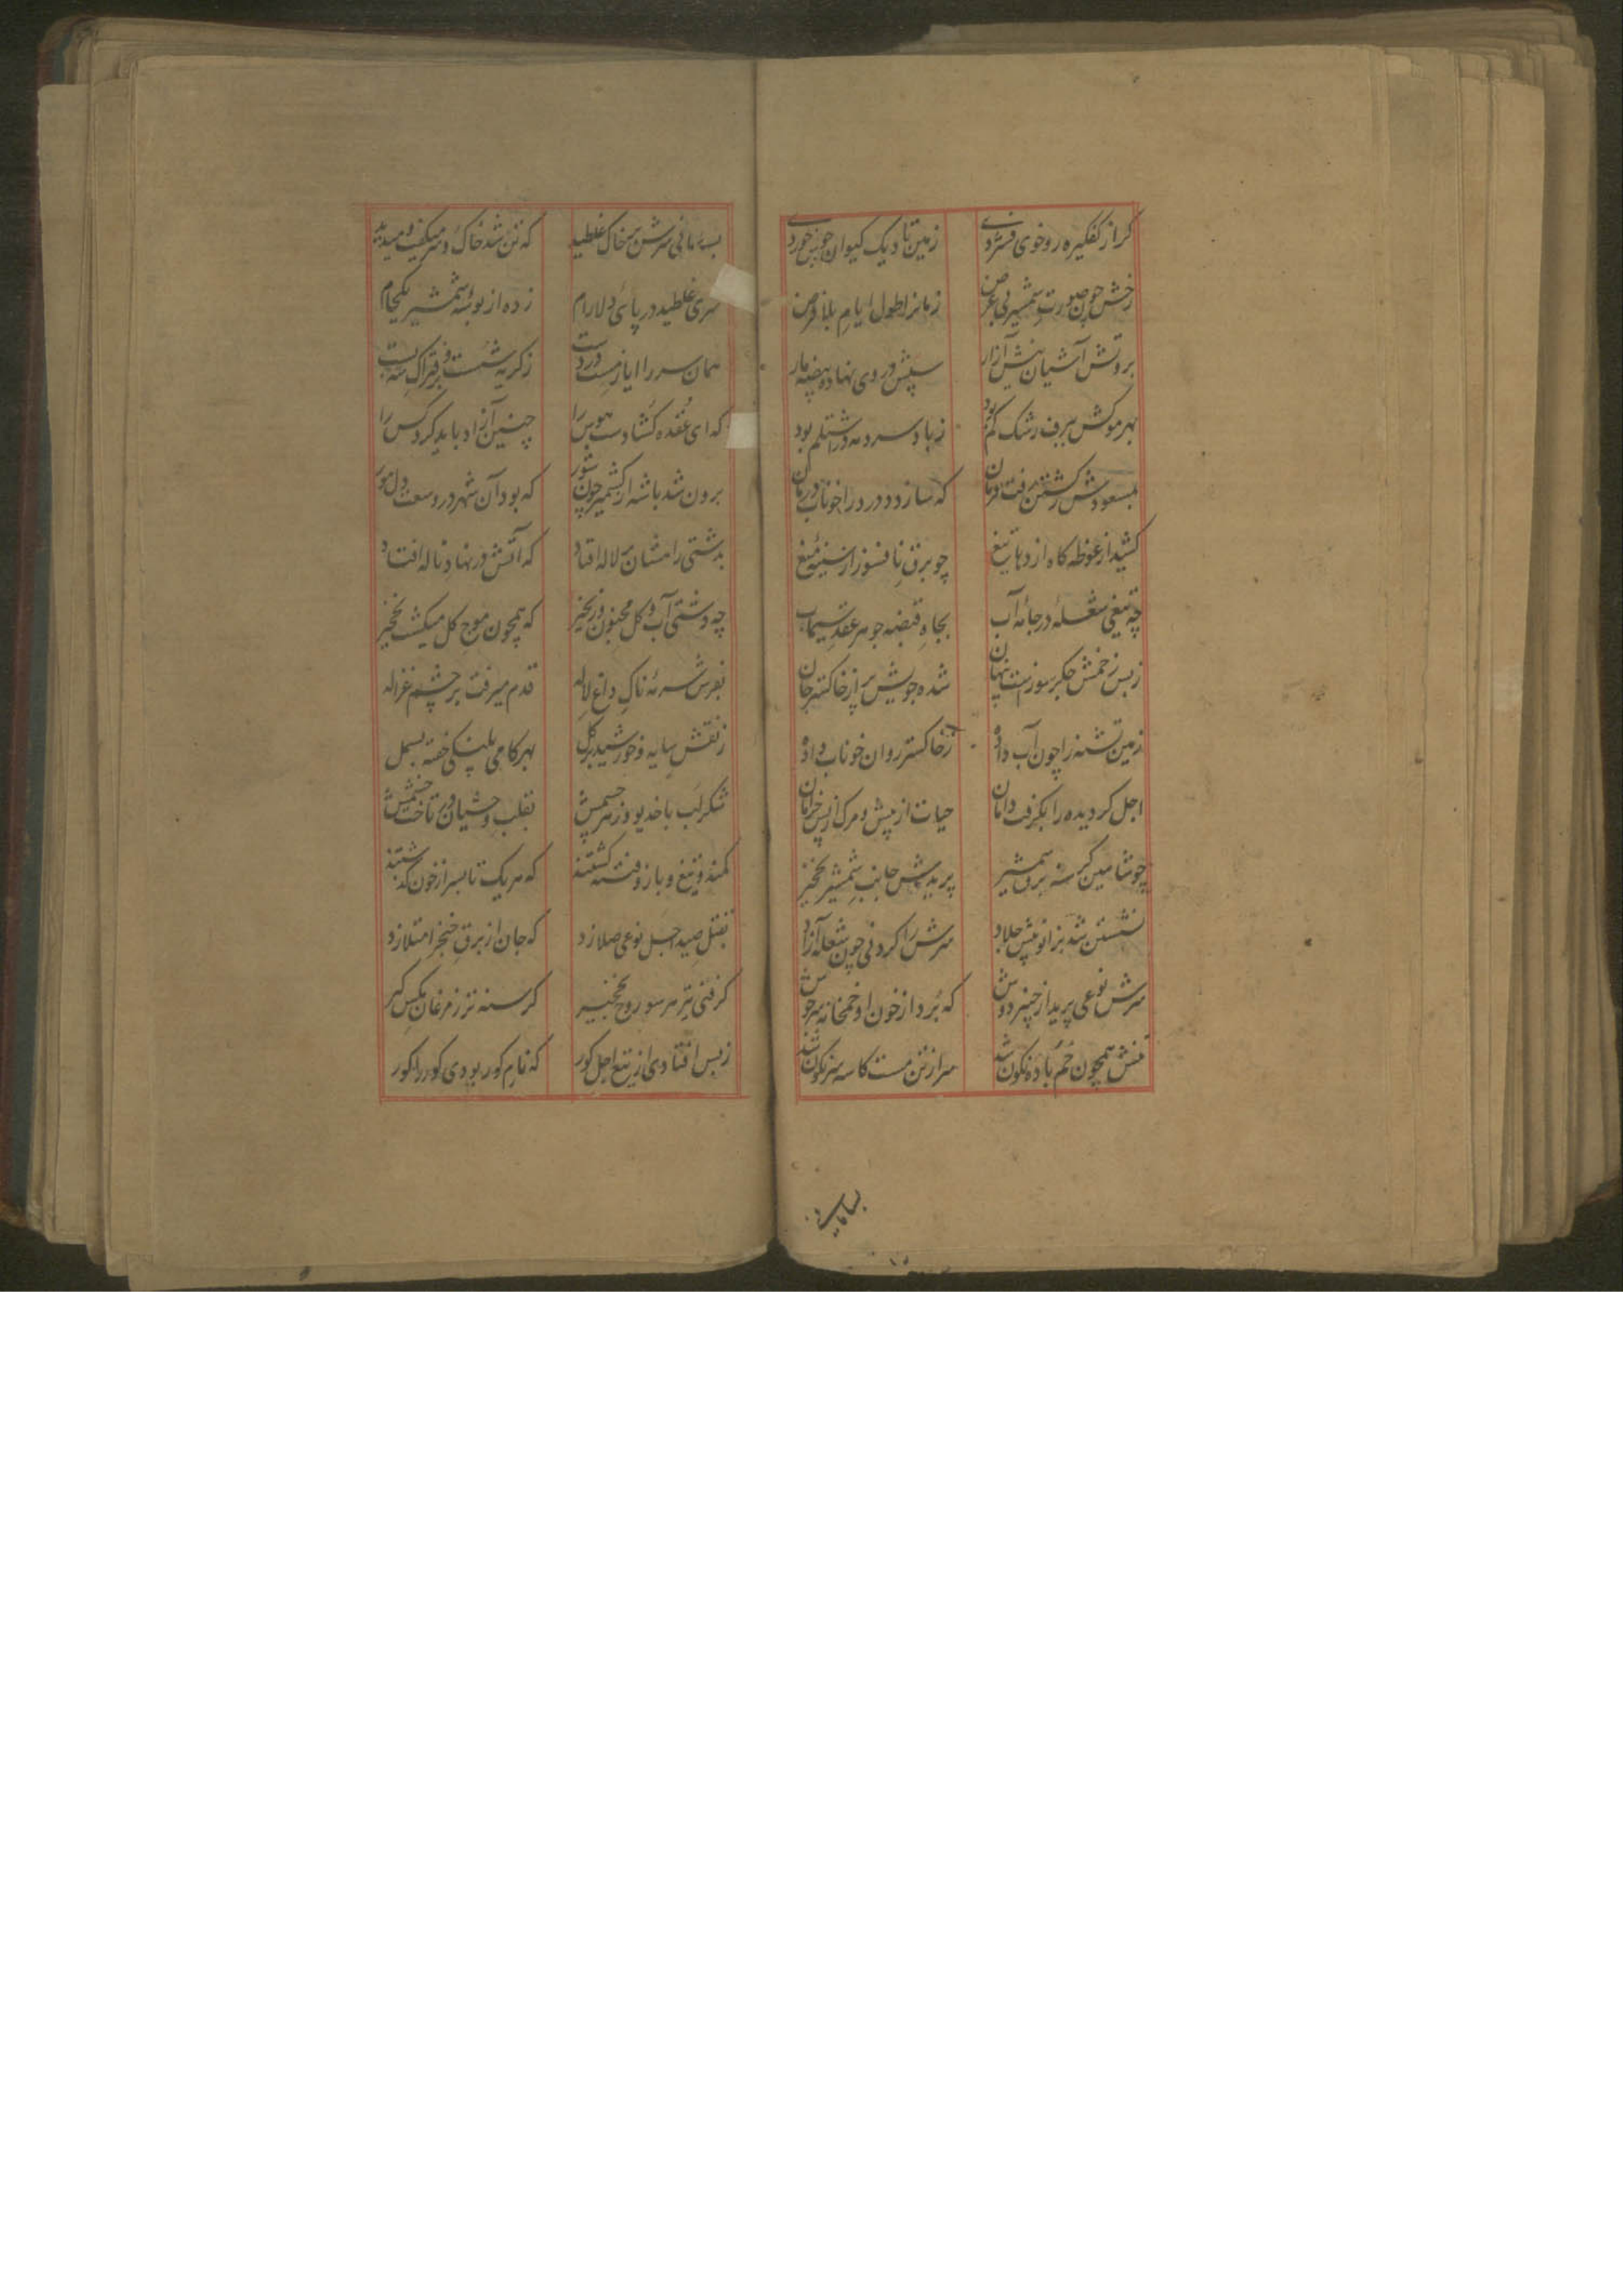 گر از کفگیره رو خوی فشردی زمین تا دیک کیوان خون خوردی
رخش چون صورت شمشیر بی عرض زمانرا طول ایام بلا فرض
بروتش آشیان نیش آزار سپش در وی نهاده بیضه مار
بهر مویش ببرف رشک کم بود ز باد سرد مه در اشتلم بود
بمسعودش ز کشتن رفت فرمان که سازد درد را خوناب درمان
کشید از غوطه کاه اژدها تیغ چو برق نافسوز از سینه میغ
چه تیغی شعله در جامه آب بجاه قبضه جوهر عقد سیماب
ز بس زخمش جگر سوزست پنهان شده جویش پر از خاکستر جان
زمین تشنه را چون آب داده ز خاکستر روان خوناب داده
اجل گردیده را بگرفت دامان حیات از پیش و مرگ از پس خرامان
چو شاهین گرسنه برق شمشیر پریدش جانب شمشیر نخچیر
نشستن شد بزانو پیش جلاد سرش را کردنی چون شعله آزاد
سرش نوعی پرید از چنبر دوش که برد از خون او خمخانه سرجوش
تنش همچون خم باده نگون شد سر از تن مست کاسه سرنگون شد
بسامانی
بسامانی سرش بر خاک غلطید که تن شد خاک و سر میگفت و میدید
سری غلطید در پای دلارام زده از بوسه شمشیر یکجام
همان سر را ایاز مست در دست ز گریه شست و بر فتراک شه بست
که ای عقده کشا دست هوس را چنین آزاد باید کرد کس را
برون شد باشه از کشمیر چون شور که بود آن شهر در وسعت دل مور
بدشتی رامشان بر لاله افتاد که آتش در نهاد ناله افتاد
چه دشتی آب و گل مجنون و زنجیر که همچون موج گل میکشت نخچیر
بفرش سرمه ناک داغ لاله قدم میرفت بر چشم غزاله
ز نقش سایه و خورشید بر گل بهر کامی پلنگی خفته بسمل
شکر لب با خدیو رزم چشمش بقلب وحشیان در تاخت خشمش
کمند و تیغ و بازو فتنه گشتند که هر یک تا بسر از خون گذشتند
بقتل صید اجل نوعی صلا زد که جان از برق خنجر امتلا زد
گرفتی تیر هر سو روح نخچیر گرسنه تر ز مرغان مگس گیر
ز بس افتادی از تیغ اجل گور که نام گور بودی گور را گور